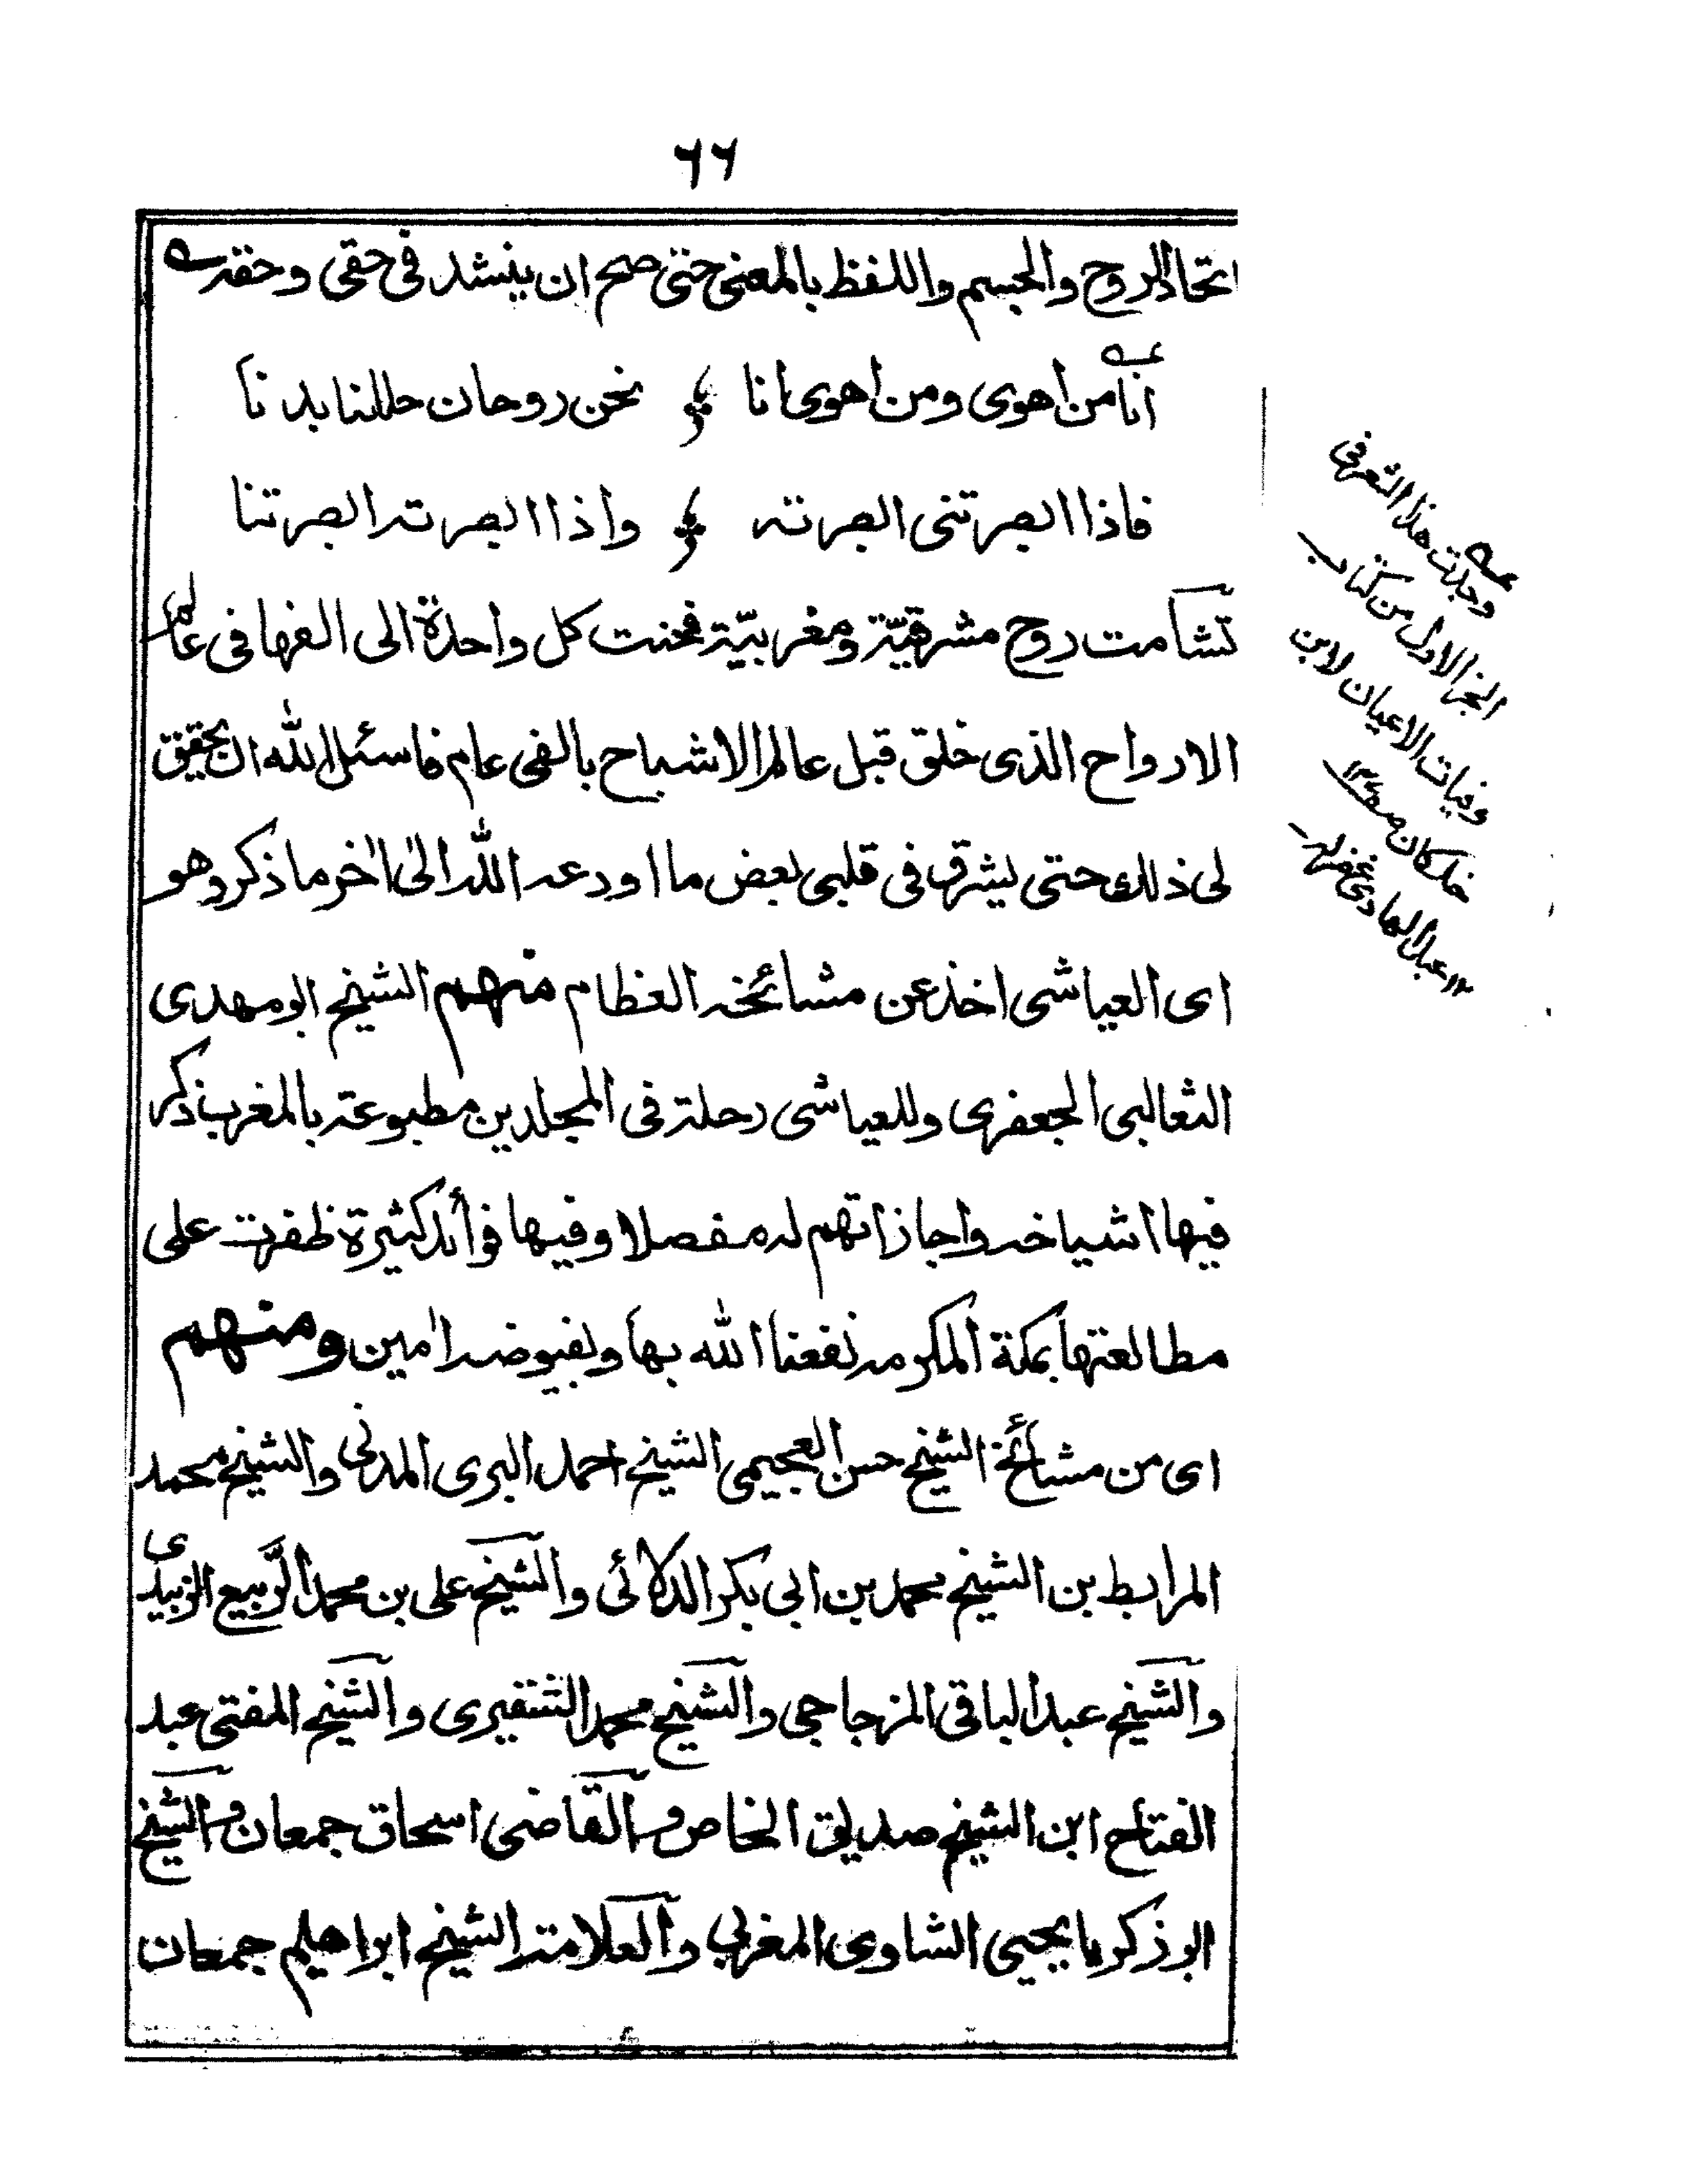 ٦٦
اتحاد الروح والجسم واللفظ بالمعنى حتى صح ان ينشد فى حقى وحقه
انا من اهوى ومن اهوى انا نحن روحان حللنا بدنا
فاذا ابصرتنى ابصرته واذا ابصرته ابصرتنا
تشامت روح مشرقيّة ومغربيّة فحنت كل واحدة الى الفها فى عالم
الارواح الذى خلق قبل عالم الاشباح بالفى عام فاسئل الله ان يحقق
لى ذلك حتى يشرق فى قلبى بعض ما اودعه الله الى اٰخر ما ذكر وهو
اى العياشى اخذ عن مشائخه العظام منهم الشيخ ابو مهدى
الثعالبى الجعفرى وللعياشى رحلة فى المجلدين مطبوعة بالمغرب ذكر
فيها اشياخه واجازاتهم له مفصلا وفيها فوائد كثيرة ظفرت على
مطالعتها بمكة المكرمه نفعنا الله بها وبفيوضه اٰمين ومنهم
اى من مشائخ الشيخ حسن العجيمى الشيخ احمد البرى المدنى والشيخ محمد
المرابط بن الشيخ محمد بن ابى بكر الدلائى والشيخ على بن محمد الرّبيع الزبيدى
والشيخ عبد الباقى المزجاجى والشيخ محمد الشنقيرى والشيخ المفتى عبد
الفتاح ابن الشيخ صديق الخاص والقاضى اسحاق جمعان والشيخ
ابو ذكريا يحيى الشاوى المغربى والعلامة الشيخ ابراهيم جمعان
وجدت هذا الشعر فى
الجزء الاول من كتاب
وفيات الاعيان لابن
خلكان صـ
١٢ عبد الهادى غفر له